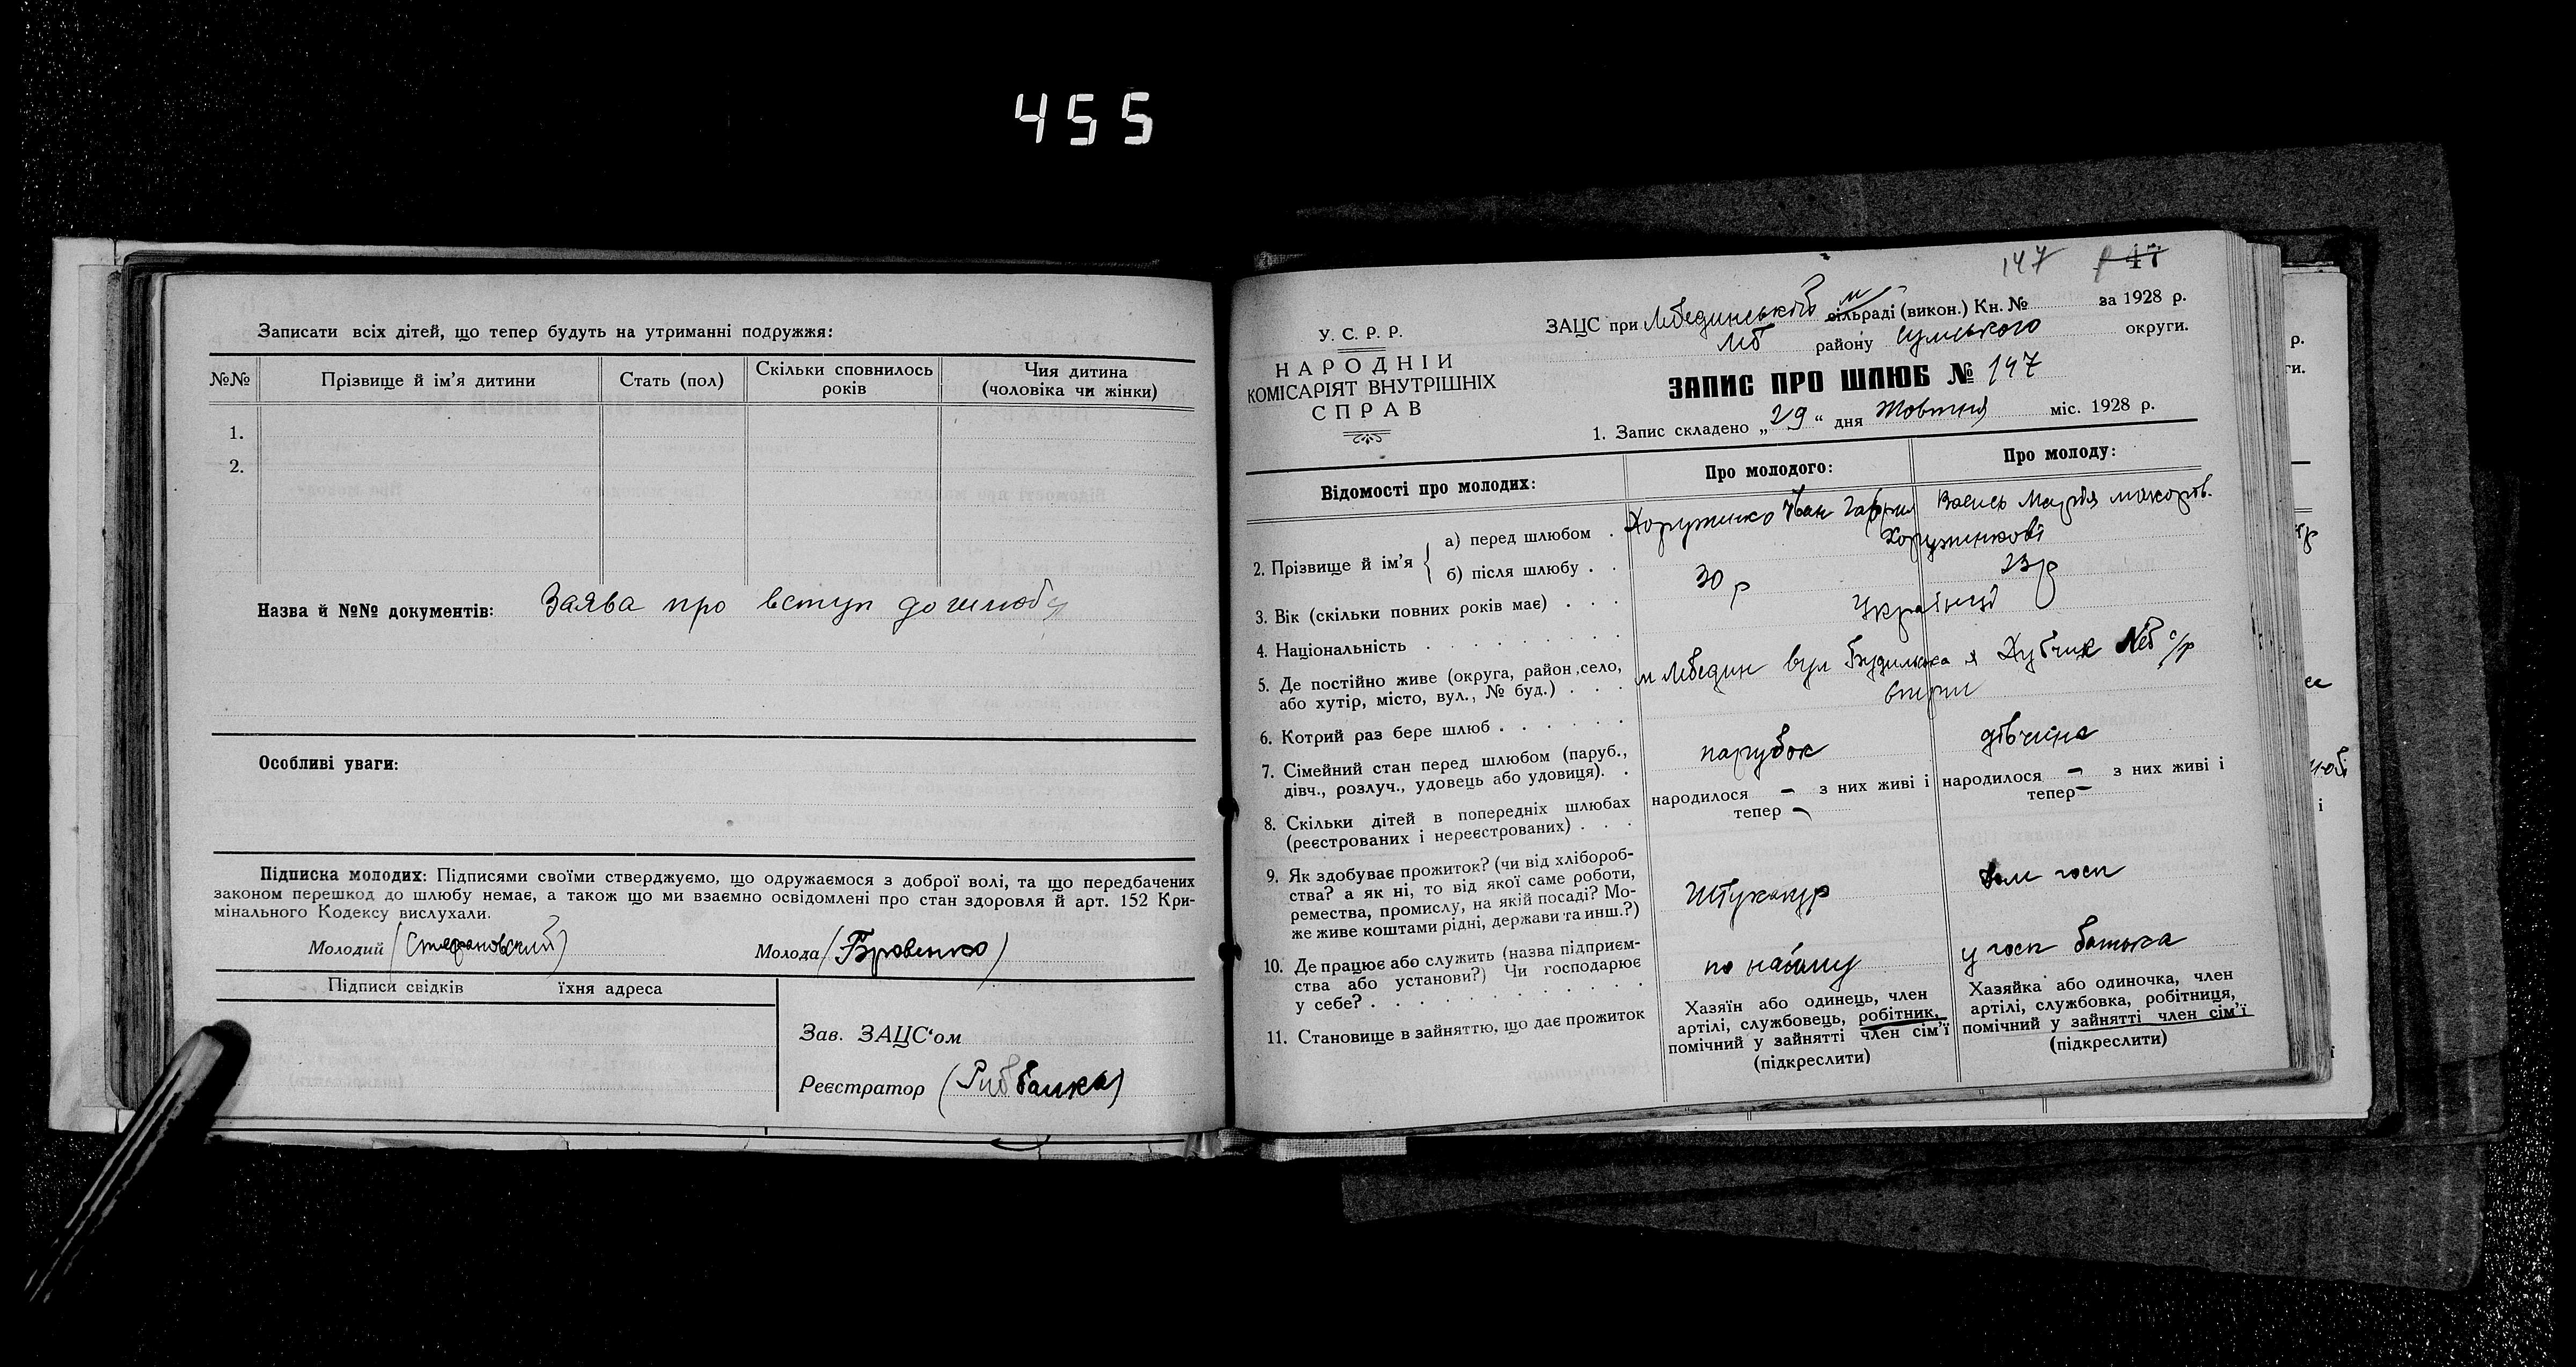 455
Записати всіх дітей, що тепер будуть на утриманні подружжя:
№№ Прізвище й ім'я дитини Стать (пол) Скільки сповнилось років Чия дитина (чоловіка чи жінки)
1.
2.
Назва й №№ документів: Заява про вступ до шлюбу
Особливі уваги:
Підписка молодих: Підписями своїми стверджуємо, що одружаємося з доброї волі, та що передбачених
законом перешкод до шлюбу немає, а також що ми взаємно освідомлені про стан здоровля й арт. 152 Кри-
мінального Кодексу вислухали.
Молодий (Стефановский) Молода (Бровенко)
Підписи свідків їхня адреса
Зав. ЗАЦС'ом
Реєстратор
147 147
У. С. Р. Р.
НАРОДНІЙ
КОМІСАРІЯТ ВНУТРІШНІХ
СПРАВ
ЗАЦС при Лебединській м сільраді (викон.) Кн. № за 1928 р.
Леб району Сумського округи.
ЗАПИС ПРО ШЛЮБ № 147
1. Запис складено „29“ дня Жовтня міс. 1928 р.
Відомості про молодих: Про молодого: Про молоду:
2. Прізвище й ім'я
а) перед шлюбом . Хоруженко Іван Марія
б) після шлюбу . . Хоруженкові
3. Вік (скільки повних років має) . . . 30 р 23 р
4. Національність . . . . . . . . Українці
5. Де постійно живе (округа, район, село,
або хутір, місто, вул., № буд.) . . . м Лебедин вул Леб с/р
6. Котрий раз бере шлюб . . . . . . вперш
7. Сімейний стан перед шлюбом (паруб.,
дівч., розлуч., удовець або удовиця). . парубок дівчина
8. Скільки дітей в попередніх шлюбах
(реєстрованих і нереєстрованих) . . .
народилося – з них живі і
тепер –
народилося – з них живі і
тепер –
9. Як здобуває прожиток? (чи від хлібороб-
ства? а як ні, то від якої саме роботи,
ремества, промислу, на якій посаді? Мо-
же живе коштами рідні, держави та инш.?)
Штукатур
дом госп
10. Де працює або служить (назва підприєм-
ства або установи?) Чи господарює
у себе? . . . . . . . . . . . .
по найму
у госп батька
11. Становище в зайняттю, що дає прожиток
Хазяїн або одинець, член
артілі, службовець, робітник,
помічний у зайнятті член сім'ї
(підкреслити)
Хазяйка або одиночка, член
артілі, службовка, робітниця,
помічний у зайнятті член сім'ї
(підкреслити)